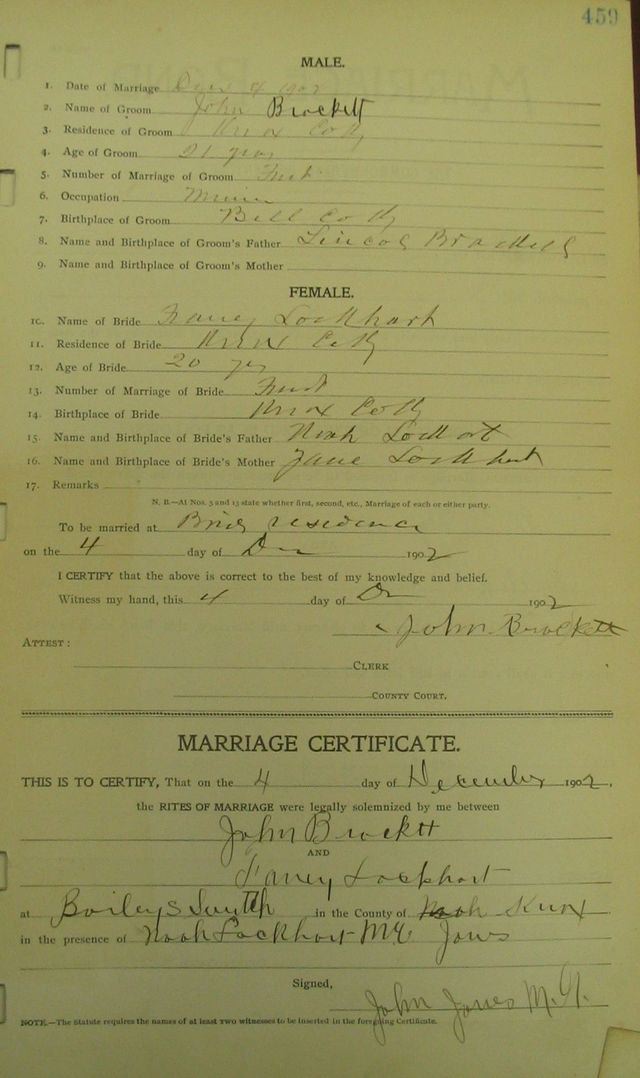 459
MALE.
1. Date of Marriage Dec 4 1902
2. Name of Groom John Brockett
3. Residence of Groom Knox Co Ky
4. Age of Groom 21 yrs
5. Number of Marriage of Groom First
6. Occupation Miner
7. Birthplace of Groom Bell Co Ky
8. Name and Birthplace of Groom's Father
9. Name and Birthplace of Groom's Mother
FEMALE.
10. Name of Bride Fancy Lockhart
11. Residence of Bride Knox Co Ky
12. Age of Bride 20 yrs
13. Number of Marriage of Bride First
14. Birthplace of Bride Knox Co Ky
15. Name and Birthplace of Bride's Father Noah
16. Name and Birthplace of Bride's Mother Jane
17. Remarks
N. B.—At Nos. 5 and 13 state whether first, second, etc., Marriage of each or either party.
To be married at Brids residence
on the 4 day of Dec 1902
I CERTIFY that the above is correct to the best of my knowledge and belief.
Witness my hand, this 4 day of Dec 1902
John Brockett
ATTEST:
CLERK
COUNTY COURT.
MARRIAGE CERTIFICATE.
THIS IS TO CERTIFY, That on the 4 day of December 1902,
the RITES OF MARRIAGE were legally solemnized by me between
John Brockett
AND
Fancy Lockhart
at in the County of Knox
in the presence of Noah Lockhart
Signed,
John Jones M.G.
NOTE.—The Statute requires the names of at least two witnesses to be inserted in the foregoing Certificate.